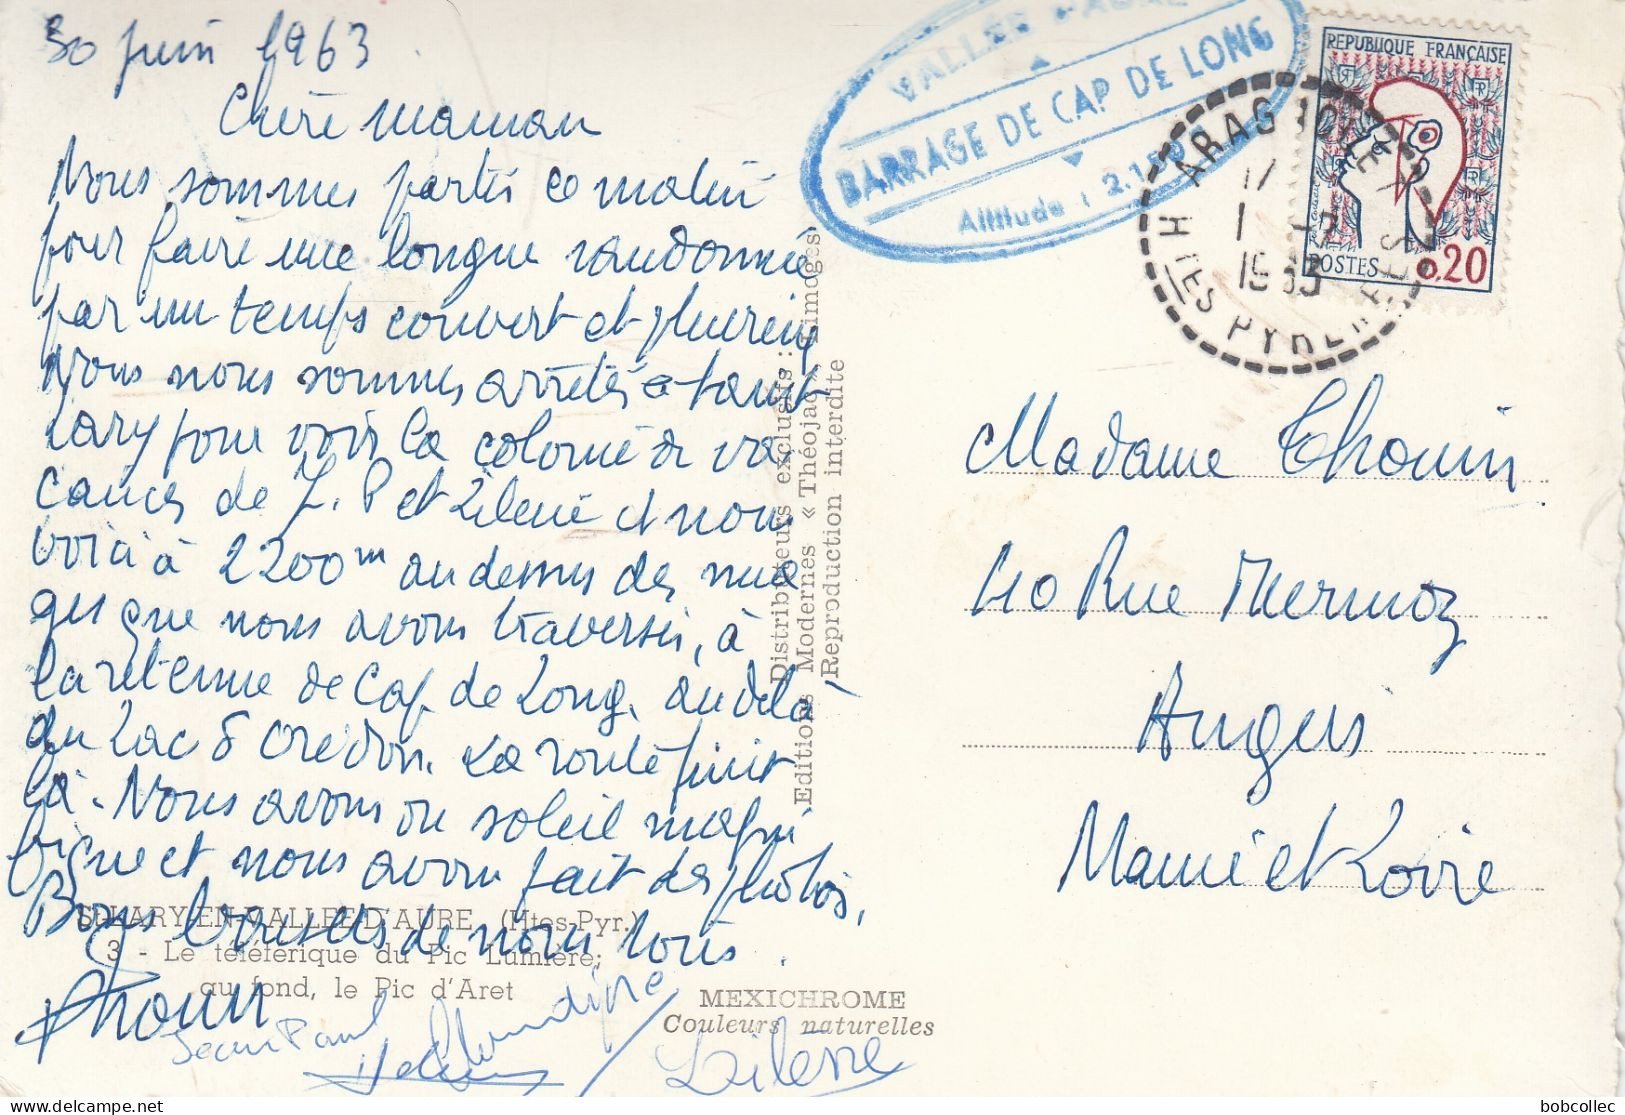 30 juin 1963
Chère maman
Nous sommes partis ce matin
pour faire une longue randonnée
par un temps couvert et pluvieux
Nous nous sommes arrêtés à Saint
Lary pour voir la colonie de va
cances de J. P et Lilène et nous
voici à 2200m au dessus des nua
ges que nous avons traversés, à
la retenue de Cap de Long, au delà
du Lac d'Orédon. La route finit
là. Nous avons vu soleil magni
fique et nous avons fait des photos.
Bons baisers de nous tous.
Thouin
Jean Paul
Lilène
ST-LARY-EN-VALLEE-D'AURE (Htes-Pyr.)
3 - Le téléférique du Pic Lumière;
au fond, le Pic d'Aret
MEXICHROME
Couleurs naturelles
Distributeurs exclusifs :
Editions Modernes « Théojac » Limoges
Reproduction interdite
VALLEE D'AURE
BARRAGE DE CAP DE LONG
Altitude : 2.150
ARAGNOUET
HTES PYRENEES
17
1963
REPUBLIQUE FRANÇAISE
RF
POSTES
0,20
Madame Thouin
40 Rue Mermoz
Angers
Maine et Loire
bobcollec